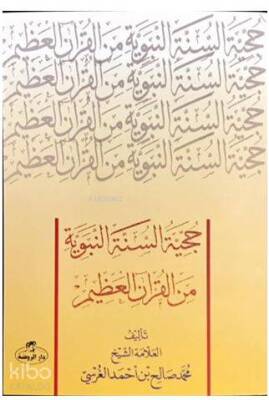 حجية السنة النبوية من القرآن العظيم
حجية السنة النبوية من القرآن العظيم
حجية السنة النبوية من القرآن العظيم
حجية السنة النبوية من القرآن العظيم
حجية السنة النبوية
من القرآن العظيم
تأليف
العلامة الشيخ
محمد صالح بن أحمد الغرسي
دار الروضة
kibo